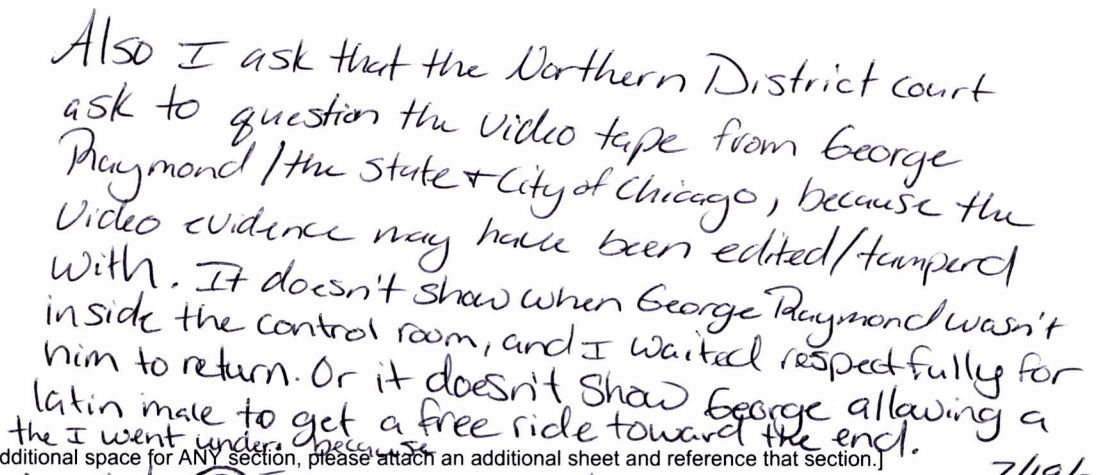 Also I ask that the Northern District court
ask to question the video tape from George
Raymond/the State & City of Chicago, because the
Video evidence may have been edited/tamperd
with. It doesn't show when George Raymond wasn't
inside the control room, and I waited respectfully for
him to return. Or it doesn't show George allowing a
latin male to get a free ride toward the end.
the I went under, because
dditional space for ANY section, please attach an additional sheet and reference that section.]
7/19/